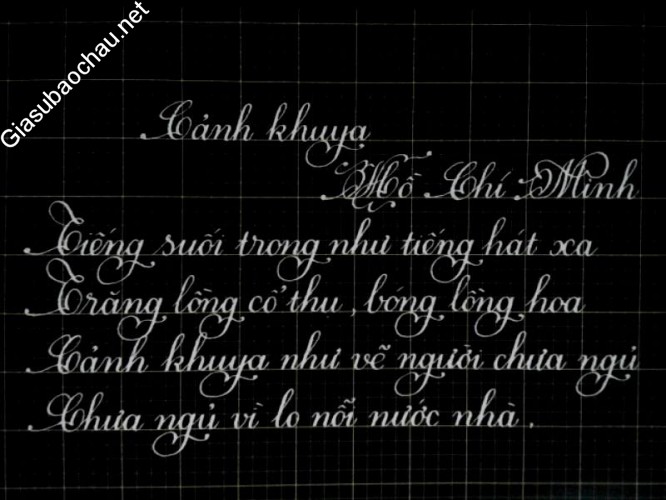 Giasubaochau.net
Cảnh khuya
Hồ Chí Minh
Tiếng suối trong như tiếng hát xa
Trăng lồng cổ thu, bóng lồng hoa
Cảnh khuya như vẽ người chưa ngủ
Chưa ngủ vì lo nỗi nước nhà.